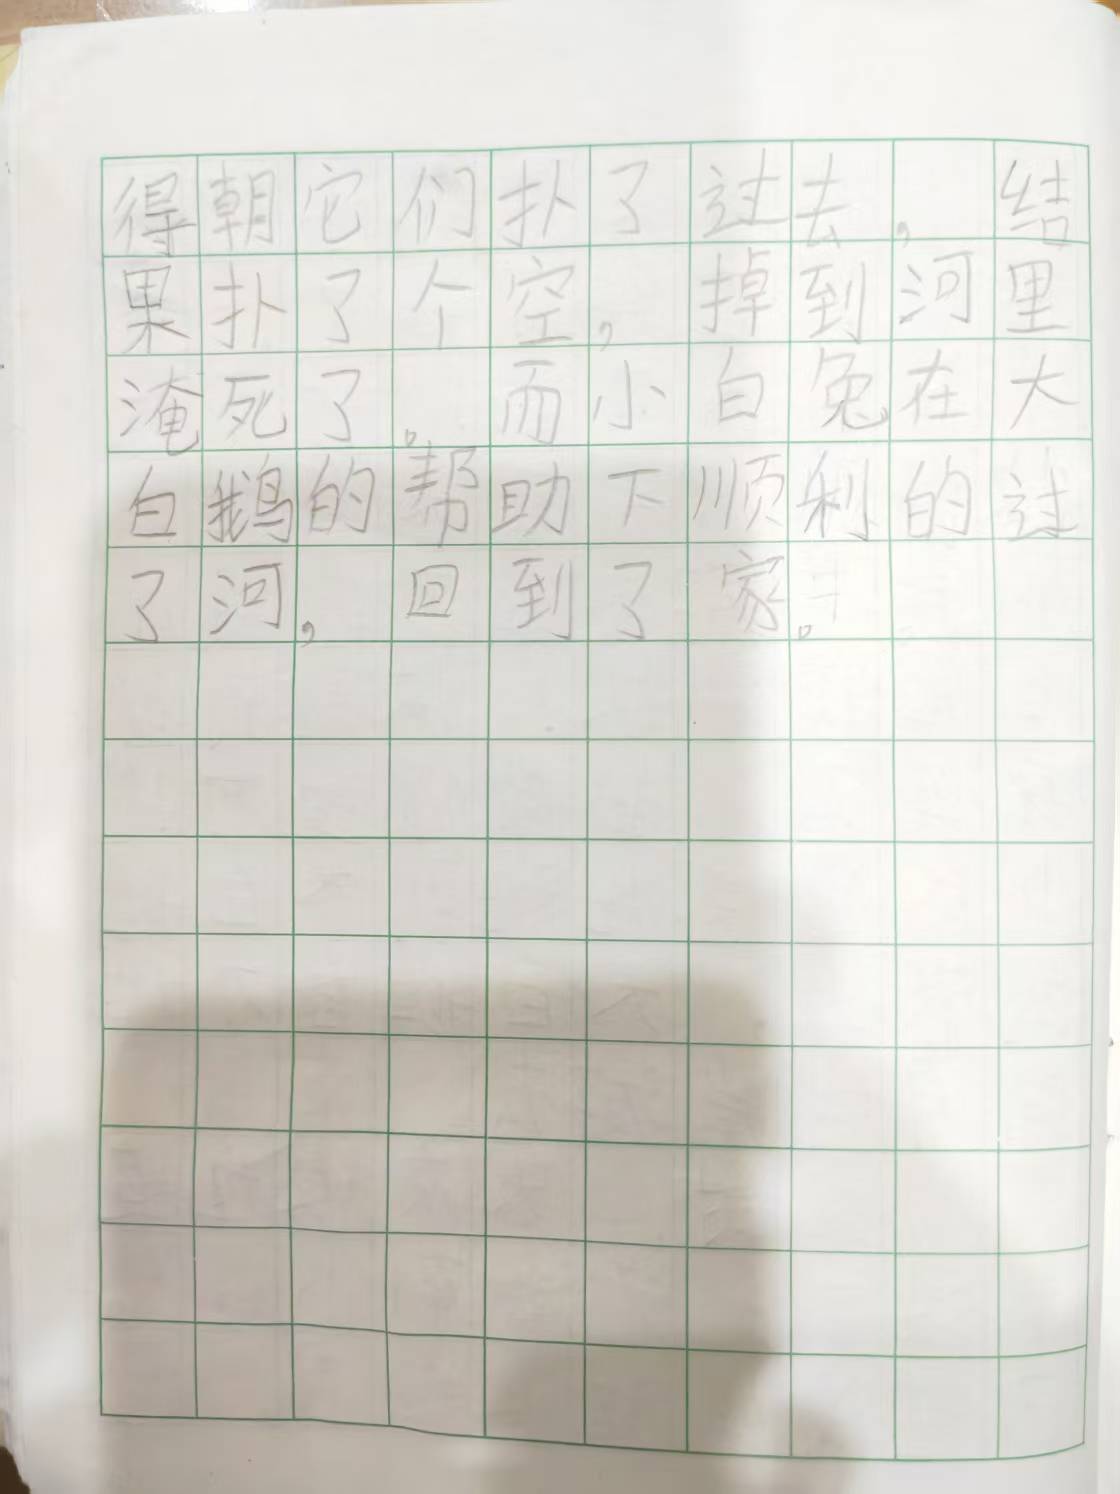 得朝它们扑了过去,结
果扑了个空,掉到河里
淹死了。而小白兔在大
白鹅的帮助下顺利的过
了河,回到了家。